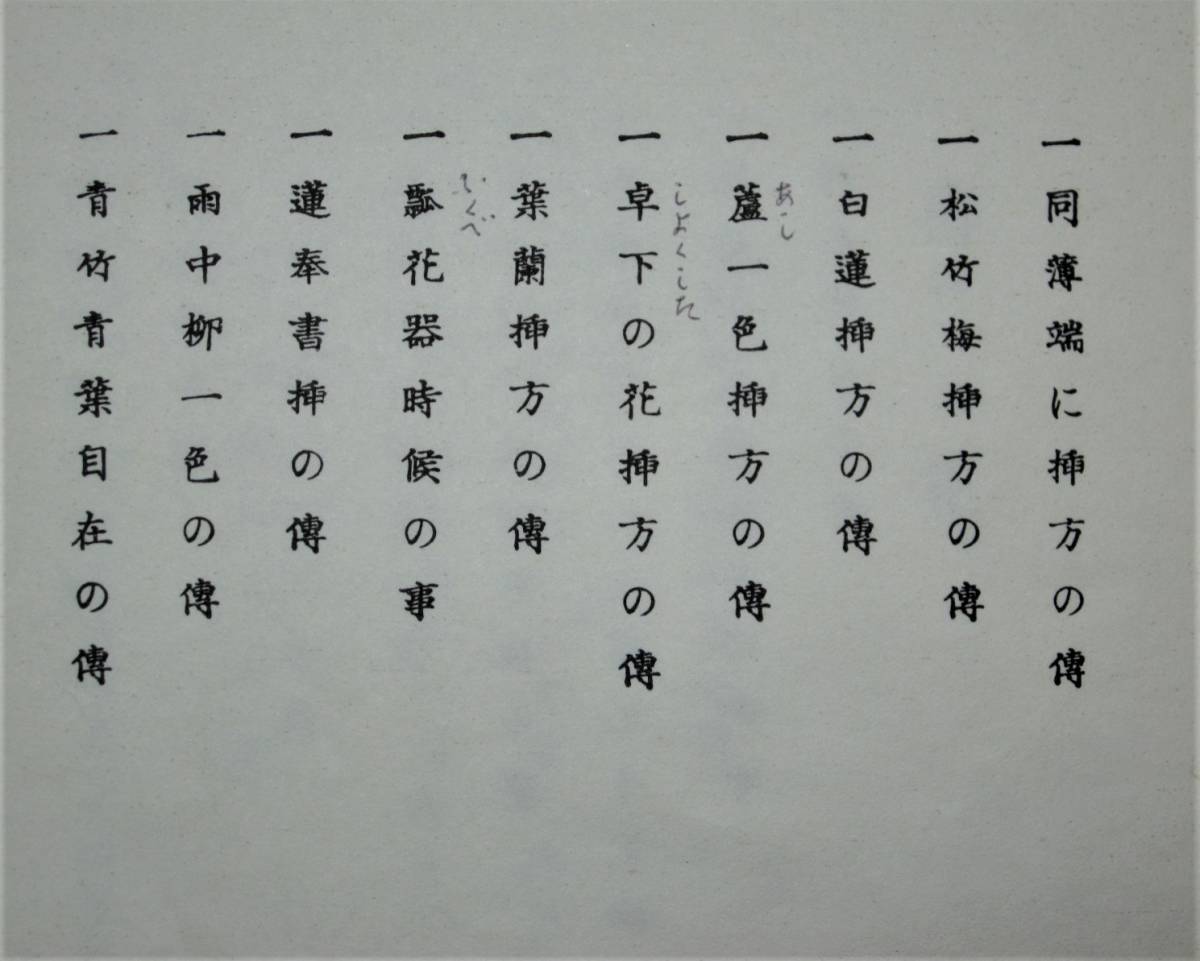 一同薄端に挿方の傳
一松竹梅挿方の傳
一白蓮挿方の傳
あし
一蘆一色挿方の傳
しよくした
一卓下の花挿方の傳
一葉蘭挿方の傳
一瓢花器時候の事
一蓮奉書挿の傳
一雨中柳一色の傳
一青竹青葉自在の傳